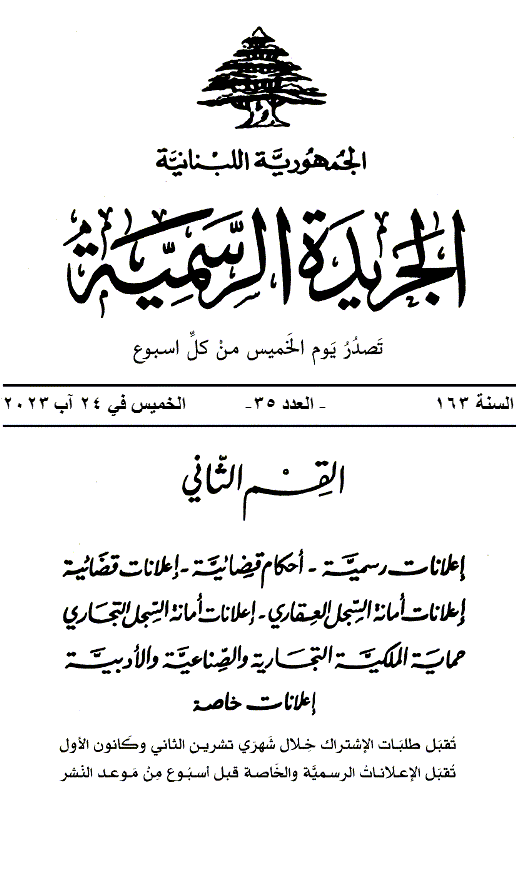 الجمهورية اللبنانية
الجريدة الرسمية
تصدر يوم الخميس من كل اسبوع
السنة ١٦٣ - العدد ٣٥ - الخميس في ٢٤ آب ٢٠٢٣
القسم الثاني
إعلانات رسمية - أحكام قضائية - إعلانات قضائية
إعلانات أمانة السجل العقاري - إعلانات أمانة السجل التجاري
حماية الملكية التجارية والصناعية والأدبية
إعلانات خاصة
تُقبَل طلبَات الإشتراك خِلال شَهرَي تشرين الثاني وكَانون الأول
تُقبَل الإعلاناتُ الرسميَّة والخَاصة قبل أسبُوع مِنْ مَوعد النَشر